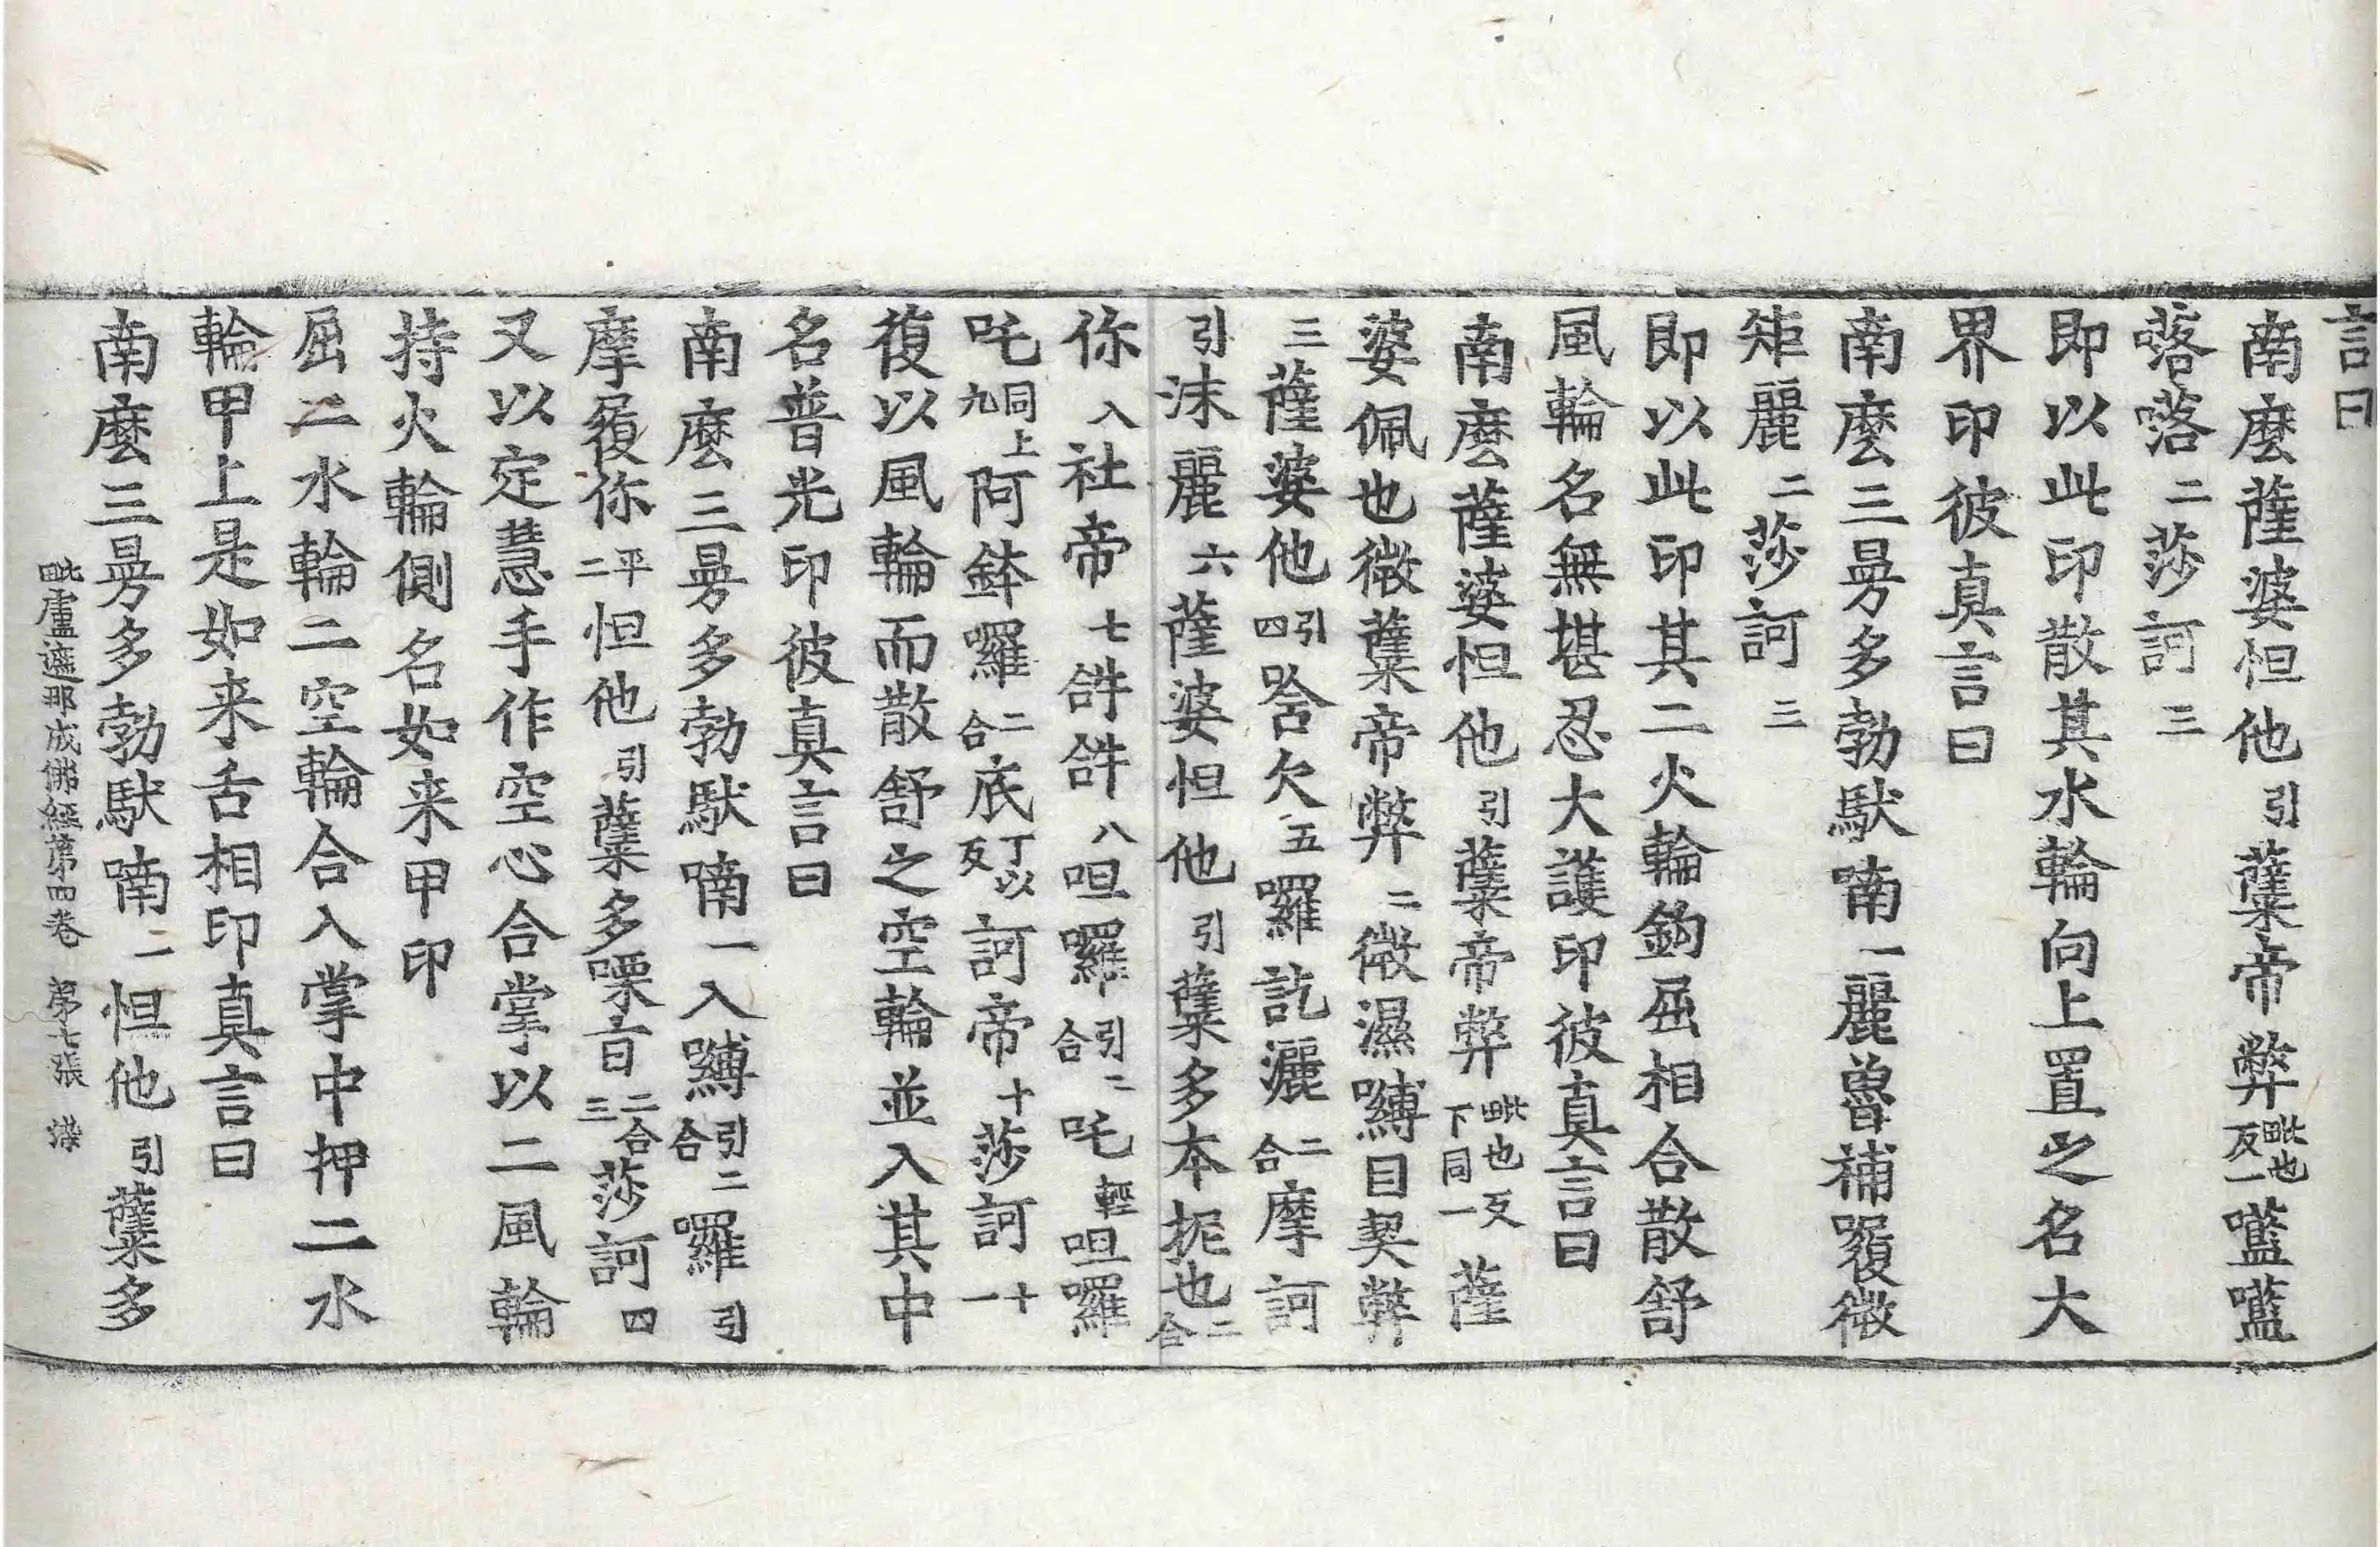 言曰
南麽薩婆怛他引蘗帝弊毗也反一嚂嚂
㗲㗲二莎訶三
即以此印散其水輪向上置之名大
界印彼真言曰
南麽三曼多勃䭾喃一麗魯補㘁微
矩麗二莎訶三
即以此印其二火輪鉤屈相合散舒
風輪名無堪忍大護印彼真言曰
南麽薩婆怛他引蘗帝弊毗也反下同一薩
婆佩也微蘗帝弊二微濕嚩目契弊
三薩婆他引四唅欠五囉訖灑二合摩訶
引沫麗六薩婆怛他引蘗多本抳也二合
你入社帝七𤙖𤙖八呾囉引二合吒輕呾囉
吒同上九阿鉢囉二合底丁以反訶帝十莎訶十一
復以風輪而散舒之空輪並入其中
名普光印彼真言曰
南麽三曼多勃䭾喃一入嚩引二合囉引
摩㘁你平二怛他引蘗多㗚旨二合三莎訶四
又以定慧手作空心合掌以二風輪
持火輪側名如来甲印
屈二水輪二空輪合入掌中押二水
輪甲上是如来舌相印真言曰
南麽三曼多勃䭾喃一怛他引蘗多
毗盧遮那成佛經第四卷 第七張